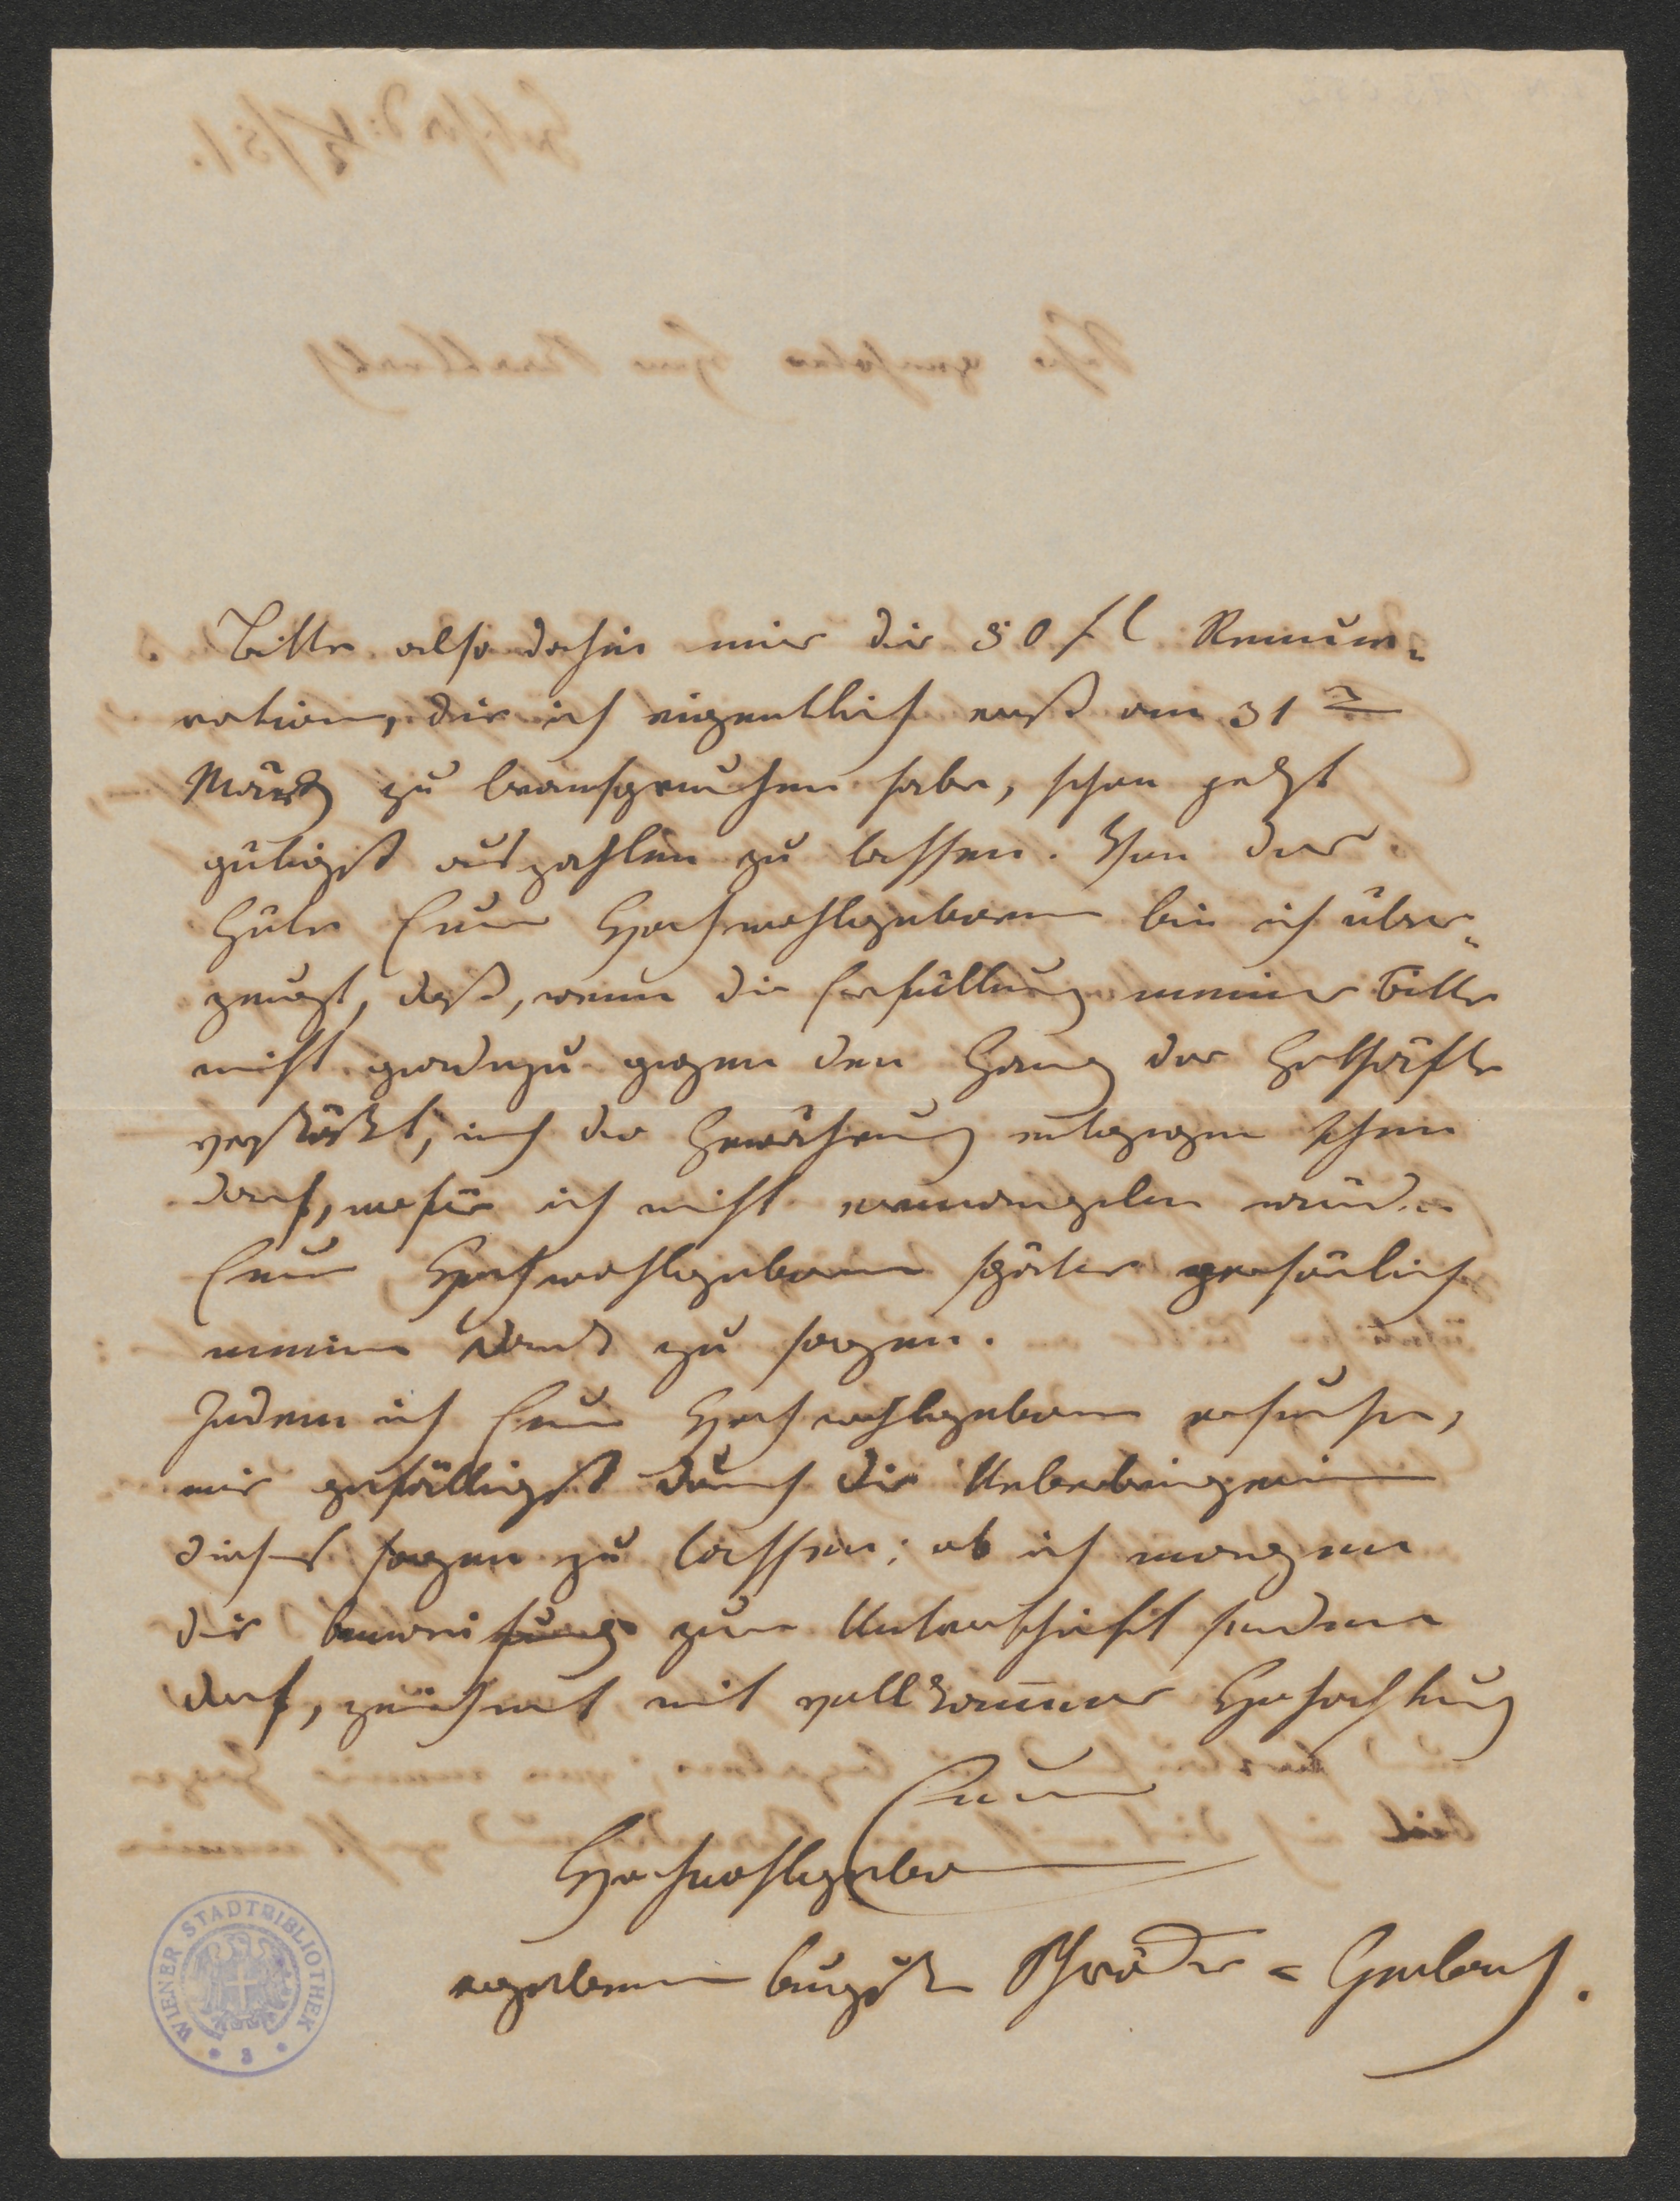 Bitte also dahin mir die 50 fl Remune-
ration, die ich eigentlich erst am 31 n
März zu beanspruchen habe, schon jetzt
gütigst auszahlen zu lassen. Von der
Güte Euer Hochwohlgeboren bin ich über-
zeugt, daß, wenn die Erfüllung meiner Bitte
nicht geradezu gegen den Gang der Geschäfte
verstößt, ich der Gewährung entgegen sehen
darf, wofür ich nicht ermangeln würde
Euer Hochwohlgeboren später persönlich
meinen Dank zu sagen.
Indem ich Euer Hochwohlgeboren ersuche,
mir gefälligst durch die Ueberbringerin
dieses sagen zu lassen; ob ich morgen
die Anweisung zur Unterschrift senden
darf, zeichnet mit vollkommner Hochachtung
Euer
Hochwohlgeboren
ergebene Auguste Schröder = Gerlach.
WIENER STADTBIBLIOTHEK